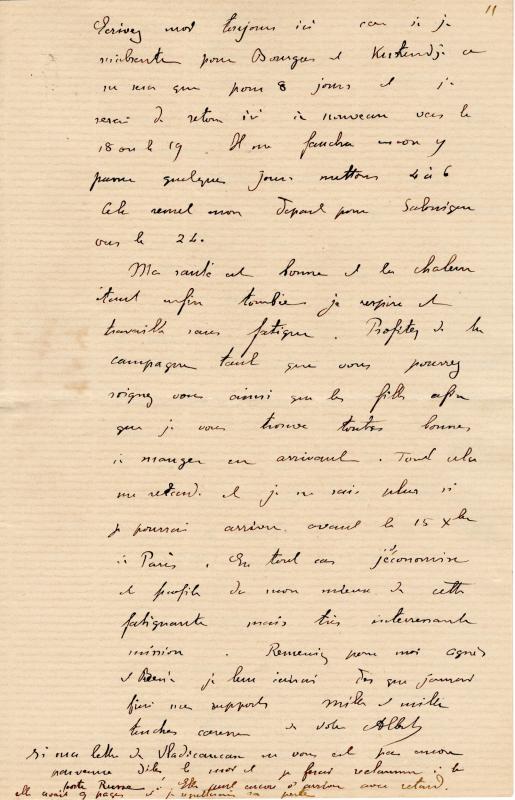 11
Ecrivez moi toujours ici car si je
m'absente pour Bourgas et Kustendje ce
ne sera que pour 8 jours et je
serai de retour ici à nouveau vers le
18 ou le 19. Il me faudra encore y
passer quelques jours mettons 4 à 6
Cela remet mon départ pour Salonique
vers le 24.
Ma santé est bonne et la chaleur
étant enfin tombée je respire et
travaille sans fatigue. Profitez de la
campagne tant que vous pourrez
soignez vous ainsi que les filles afin
que je vous trouve toutes bonnes
à manger en arrivant. Tout cela
me retarde et je ne sais plus si
je pourrai arriver avant le 15 Xbre
à Paris. En tout cas j'économise
et profite de mon mieux de cette
fatigante mais très intéressante
mission. Remerciez pour moi Agnès
et je leur écrirai dès que j'aurai
fini mes rapports mille et mille
tendres caresses de votre Albert
Si ma lettre de Vladicaucase ne vous est pas encore
parvenue dites le moi et je ferai réclamer à la
poste Russe Elle peut encore arriver avec retard.
elle avait 9 pages et je regretterais sa perte